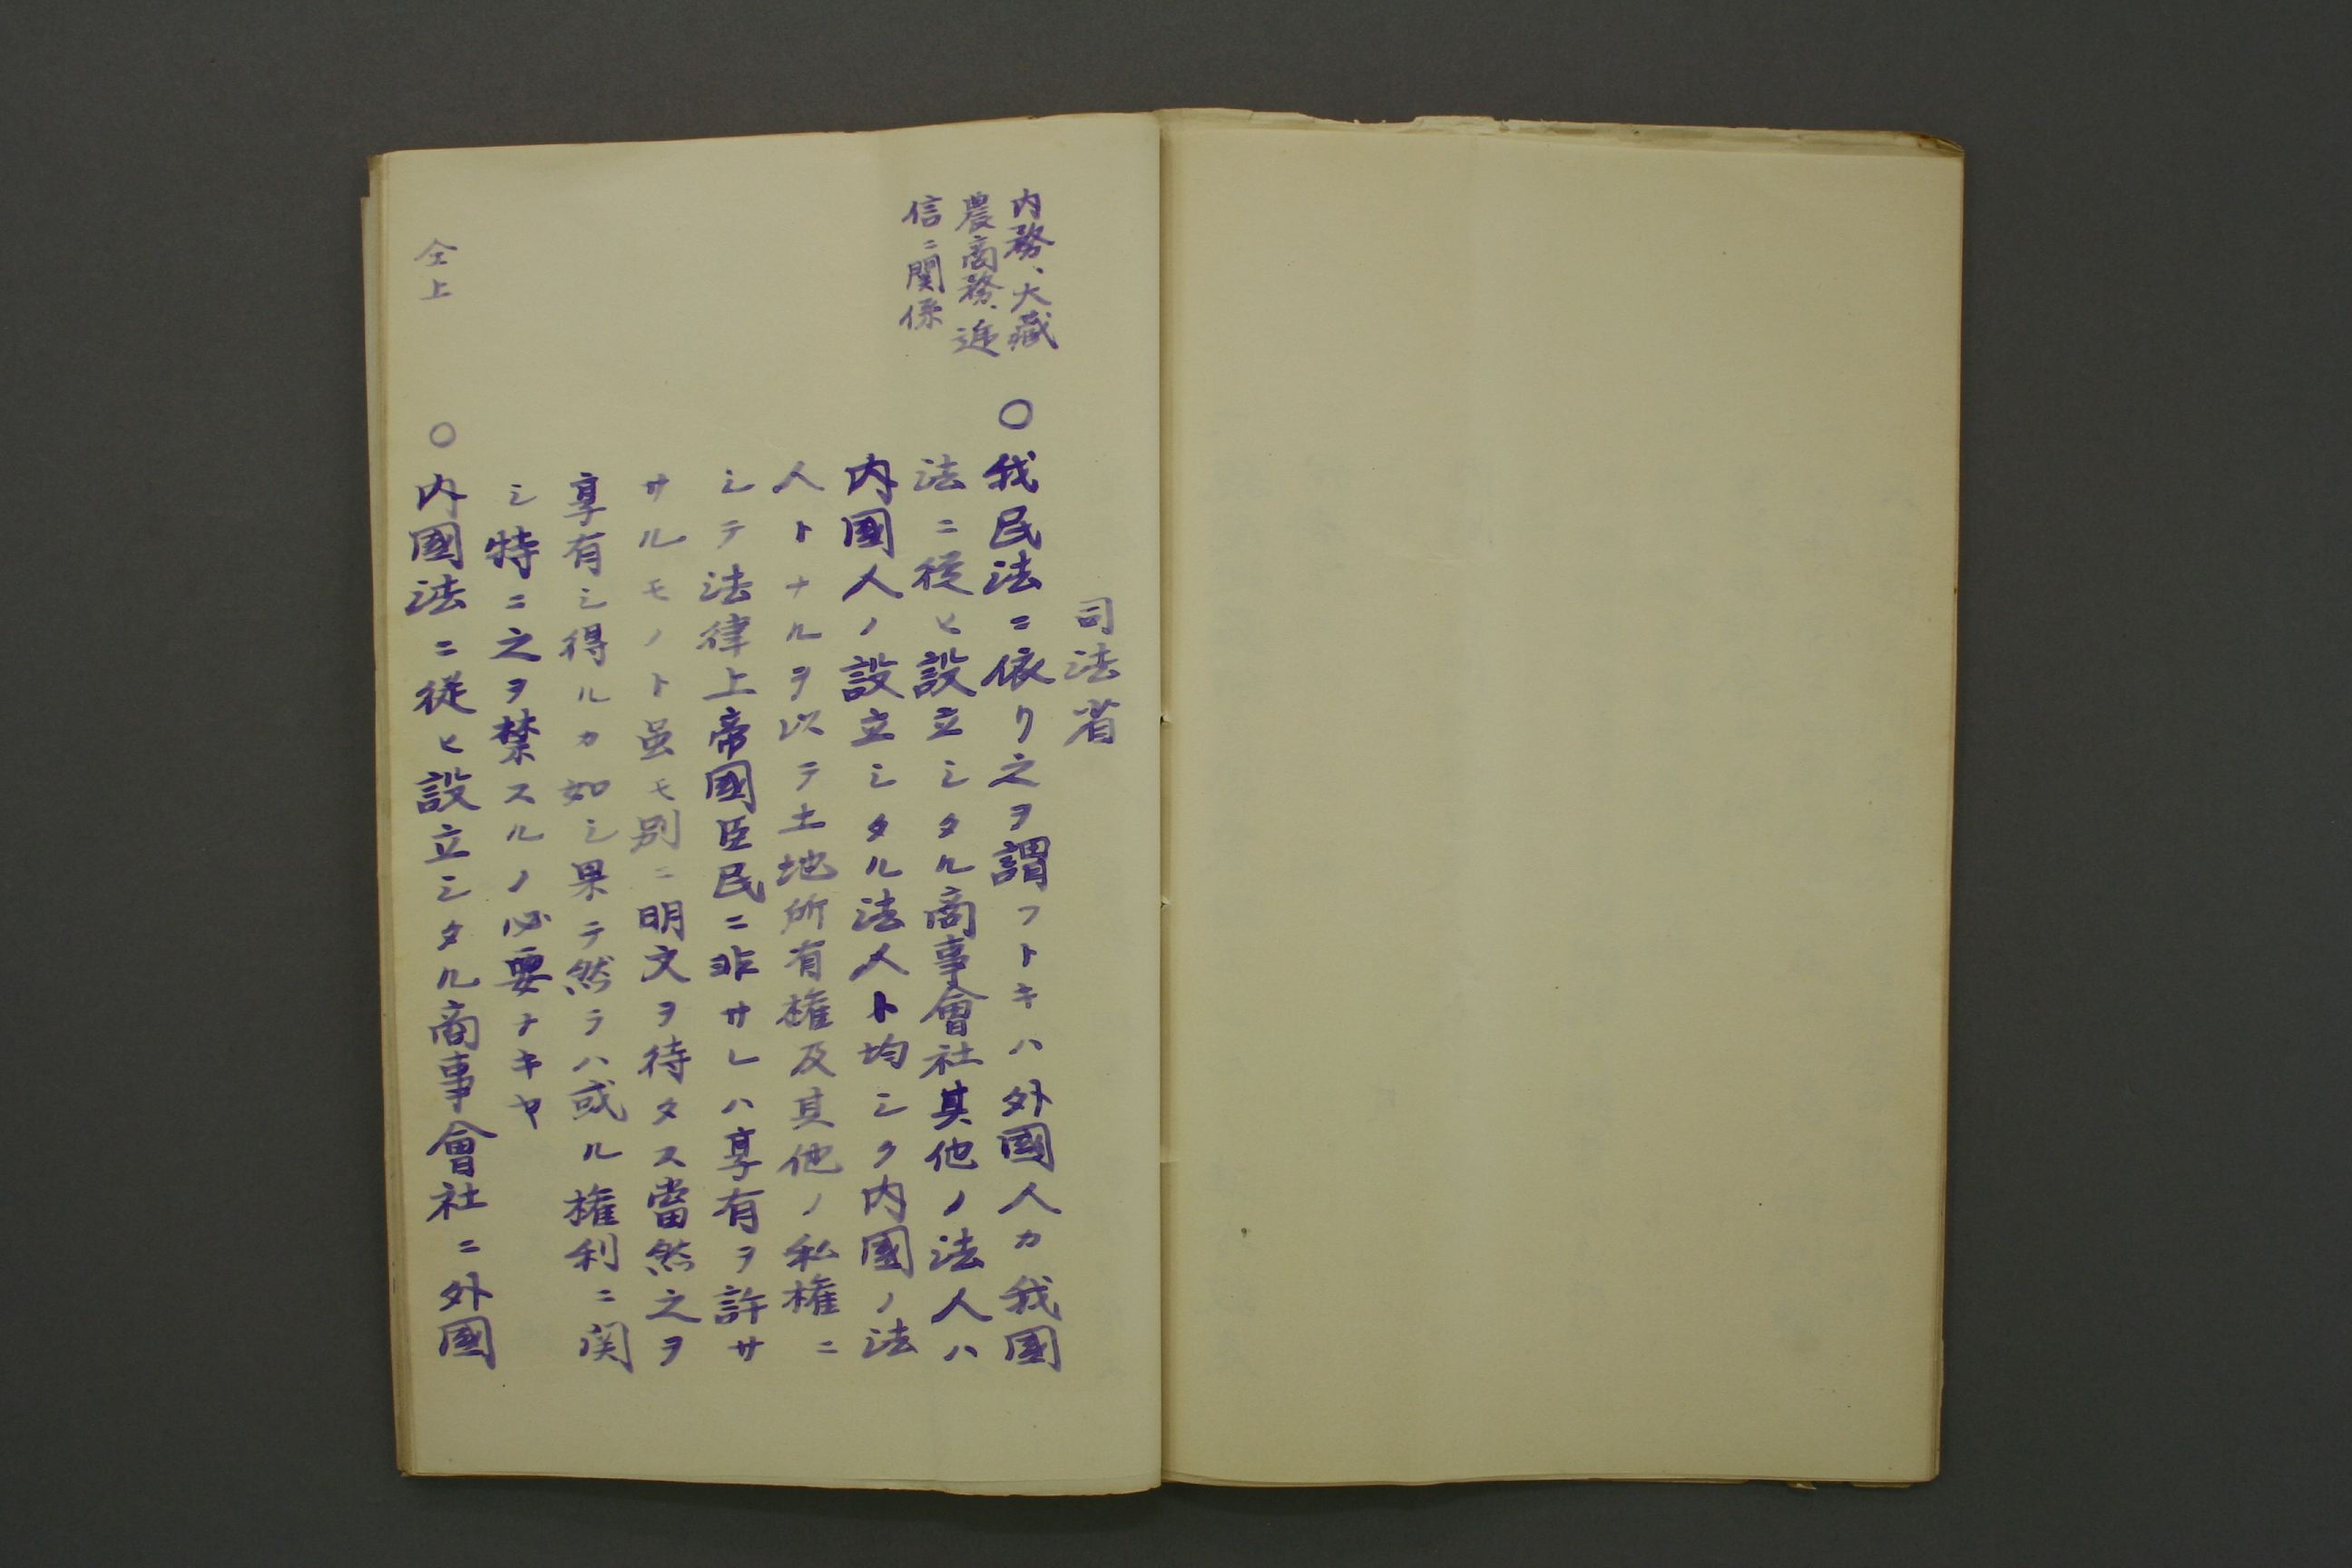 司法省
内務、大藏
農商務、逓
信ニ関係
〇我民法ニ依リ之ヲ謂フトキハ外國人カ我國
法ニ從ヒ設立シタル商事會社其他ノ法人ハ
内國人ノ設立シタル法人ト均シク内國ノ法
人トナルヲ以テ土地所有権及其他ノ私権ニ
シテ法律上帝國臣民ニ非サレハ享有ヲ許サ
サルモノト虽モ別ニ明文ヲ待タス當然之ヲ
享有シ得ルカ如シ果テ然ラハ或ル権利ニ関
シ特ニ之ヲ禁スルノ必要ナキヤ
仝上
〇内國法ニ從ヒ設立シタル商事會社ニ外國